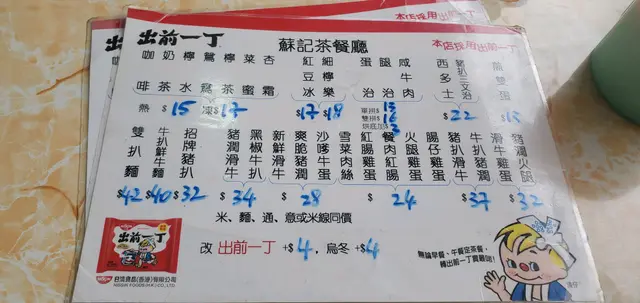 本店採用出前一丁
出前一丁
蘇記茶餐廳
本店採用出前一丁
咖啡
奶茶
檸水
鴛鴦
檸茶
菜蜜
杏霜
紅豆冰
細樂
蛋治
腿治
咸牛肉
西多士
豬扒三文治
煎雙蛋
熱 $15
凍 $17
$17 $18
單拼 $13
雙拼 $16
烘底加 $3
$22
$15
雙扒麵
牛扒鮮牛麵
招牌豬扒
豬潤滑牛
黑椒牛扒
新鮮滑牛
爽脆豬潤
沙嗲牛肉
雪菜肉絲
紅腸雞蛋
餐肉紅腸
火腿雞蛋
腸仔雞蛋
豬扒滑牛
牛扒豬潤
滑牛雞蛋
豬潤火腿
$42 $40 $32 $34 $28 $24 $37 $32
米、麵、通、意或米線同價
改 出前一丁 +$4, 烏冬 +$4
出前一丁
日清食品(香港)有限公司
NISSIN FOODS (H.K.) CO., LTD.
無論早餐、午餐定茶餐,
轉出前一丁實難唔!
清仔